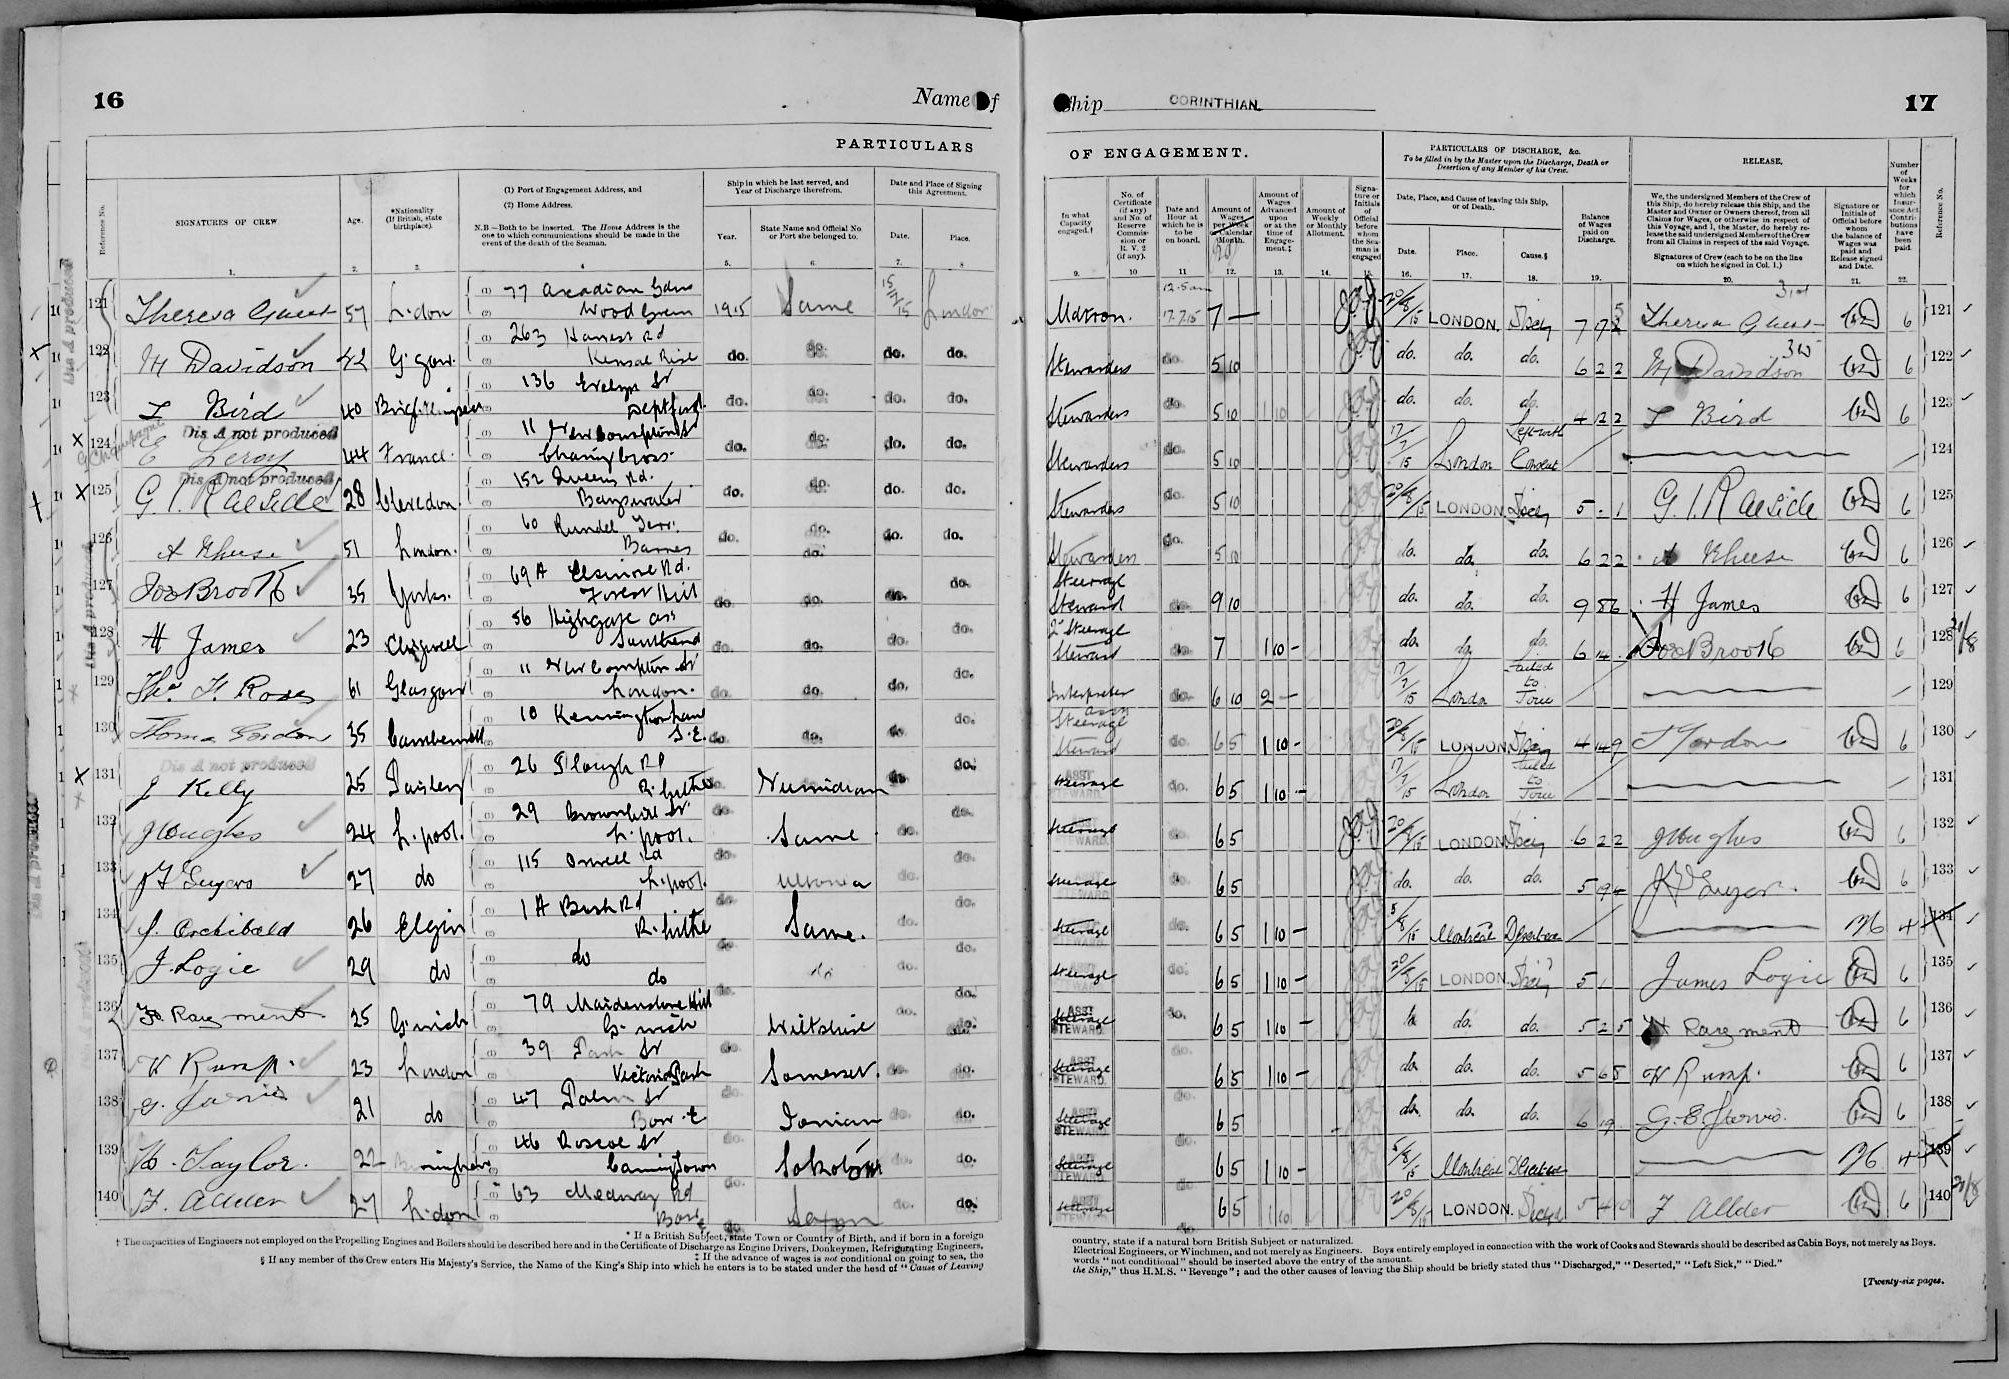 16
Name of
PARTICULARS
Reference No.
SIGNATURES OF CREW
Age.
*Nationality
(If British, state
birthplace).
(1) Port of Engagement Address, and
(2) Home Address.
N.B—Both to be inserted. The Home Address is the
one to which communications should be made in the
event of the death of the Seaman.
Ship in which he last served, and
Year of Discharge therefrom.
Year.
State Name and Official No.
or Port she belonged to.
Date and Place of Signing
this Agreement.
Date.
Place.
1. 2. 3. 4 5. 6. 7. 8
121 Theresa Guest 57 L.don 77 Arcadian Gdns Wood Green 1915 Same London
122 M Davidson 42 G.gow. 263 Harvest Rd Kensal Rise do. do. do. do.
123 L Bird 40 136 Evelyn St Deptford. do. do. do. do.
Dis A not produced
124 E Leroy 44 France. 11 New Compton St Charing Cross. do. do. do. do.
Dis A not produced
125 G. I. Raeside 28 Clevedon. 152 Queens Rd. Bayswater do. do. do. do.
126 A Kheese 51 London. 60 Rundel Terr. Barnes do. do. do. do.
127 Jos Brook 35 Yorks. 69A Elsinore Rd. Forest Hill do. do. do. do.
128 H James 23 Chigwell 56 Highgate Southend do. do. do. do.
129 Thos. H. Ross 61 Glasgow 11 New Compton St London. do. do. do. do.
130 Thomas Gordon 35 Camberwell 10 Kennington Lane S.E. do. do. do. do.
Dis A not produced
131 J Kelly 25 Paisley 26 Plough Rd R.hithe do. Numidian do. do.
132 J Hughes 24 L.pool. 29 Brownhill St L.pool. do. Same do. do.
133 27 do 115 Orwell Rd L.pool. do. Ultonia do. do.
134 J. Archibald 26 Elgin 1A Bush Rd R.hithe do. Same. do. do.
135 J. Logie 29 do do do do. do do. do.
136 Rayment 25 G.wich 79 Maidenstone Hill G.wich do. Wiltshire do. do.
137 W Rump. 23 London 39 Park St Victoria Park do. Somerset. do. do.
138 G. Jarvis 21 do 47 Palm St Bow. E do. Ionian do. do.
139 Taylor. 22 Birmingham 46 Roscoe St Canning Town do. do. do.
140 F. Allder 27 L.don 63 Medway Rd Bow E do. Saxon do. do.
* If a British Subject, state Town or Country of Birth, and if born in a foreign
† The capacities of Engineers not employed on the Propelling Engines and Boilers should be described here and in the Certificate of Discharge as Engine Drivers, Donkeymen, Refrigerating Engineers,
‡ If the advance of wages is not conditional on going to sea, the
§ If any member of the Crew enters His Majesty's Service, the Name of the King's Ship into which he enters is to be stated under the head of "Cause of Leaving
Ship CORINTHIAN
17
OF ENGAGEMENT.
In what
Capacity
engaged.†
No. of
Certificate
(if any)
and No. of
Reserve
Commis-
sion or
R. V. 2
(if any).
Date and
Hour at
which he is
to be
on board.
Amount of
Wages
per Week
or Calendar
Month.
Amount of
Wages
Advanced
upon
or at the
time of
Engage-
ment.‡
Amount of
Weekly
or Monthly
Allotment.
Signa-
ture or
Initials
of
Official
before
whom
the Sea-
man is
engaged
PARTICULARS OF DISCHARGE, &c.
To be filled in by the Master upon the Discharge, Death or
Desertion of any Member of his Crew.
Date, Place, and Cause of leaving this Ship,
or of Death.
Date.
Place.
Cause.§
Balance
of Wages
paid on
Discharge.
RELEASE,
We, the undersigned Members of the Crew of
this Ship, do hereby release this Ship, and the
Master and Owner or Owners thereof, from all
Claims for Wages, or otherwise in respect of
this Voyage, and I, the Master, do hereby re-
lease the said undersigned Members of the Crew
from all Claims in respect of the said Voyage.
Signatures of Crew (each to be on the line
on which he signed in Col. 1.)
Signature or
Initials of
Official before
whom
the balance of
Wages was
paid and
Release signed
and Date.
Number
of
Weeks
for
which
Insur-
ance Act
Contri-
butions
have
been
paid.
Reference No.
9. 10 11 12. 13. 14. 15. 16. 17. 18. 19. 20. 21. 22.
Matron. 12.5 am 17.7.15 7 — 20/8/15 LONDON. Disch Theresa Guest 6 121
Stewardess do. 5 10 do. do. do. 6 2 2 M Davidson 6 122
Stewardess do. 5 10 1 10 do. do. do. 4 12 2 L Bird 6 123
Stewardess do. 5 10 17/7/15 London Left with Consent 124
Stewardess do. 5 10 20/8/15 LONDON Disch 5 - 1 G. I. Raeside 6 125
Stewardess do. 5 10 do. do. do. 6 2 2 A Kheese 6 126
Steerage Steward do. 9 10 do. do. do. 9 8 6 H James 6 127
2nd Steerage Steward do. 7 1 10 - do. do. do. 6 14 Jos Brook 6 128 21/8
Interpreter do. 6 10 2 - 17/7/15 London Failed to Join 129
Assn Steerage Steward do. 6 5 1 10 - 20/8/15 LONDON Disch 4 14 9 T Gordon 6 130
ASST STEWARD. Steerage do. 6 5 1 10 - 17/7/15 London Failed to Join 131
ASST STEWARD. Steerage do. 6 5 20/8/15 LONDON Disch 6 2 2 J Hughes 6 132
Steerage do. 6 5 do. do. do. 5 9 4 6 133
Steerage do. 6 5 1 10 - 5/8/15 Montreal Deserted 4 134
Steerage do. 6 5 1 10 - 20/8/15 LONDON Disch 5 1 James Logie 6 135
ASST STEWARD Steerage do. 6 5 1 10 - do. do. 5 2 5 Rayment 6 136
ASST STEWARD. Steerage do. 6 5 1 10 - do. do. do. 5 6 8 W Rump. 6 137
ASST STEWARD. Steerage do. 6 5 do. do. do. 6 19 G. E. Jarvis. 6 138
ASST STEWARD. Steerage do. 6 5 1 10 - 5/8/15 Montreal Deserted 4 139
ASST STEWARD. Steerage do. 6 5 1 10 20/8/15 LONDON. Disch 5 4 0 F. Allder 6 140 21/8
country, state if a natural born British Subject or naturalized.
Electrical Engineers, or Winchmen, and not merely as Engineers. Boys entirely employed in connection with the work of Cooks and Stewards should be described as Cabin Boys, not merely as Boys.
words "not conditional" should be inserted above the entry of the amount.
the Ship," thus H.M.S. "Revenge"; and the other causes of leaving the Ship should be briefly stated thus "Discharged," "Deserted," "Left Sick," "Died."
[Twenty-six pages.